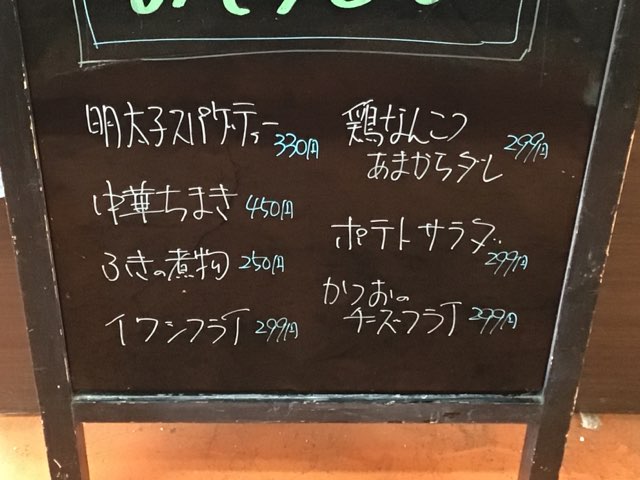 明太子スパゲッティー 330円
中華ちまき 450円
ふきの煮物 250円
イワシフライ 299円
鶏なんこつ
あまからダレ 299円
ポテトサラダ 299円
かつおの
チーズフライ 399円